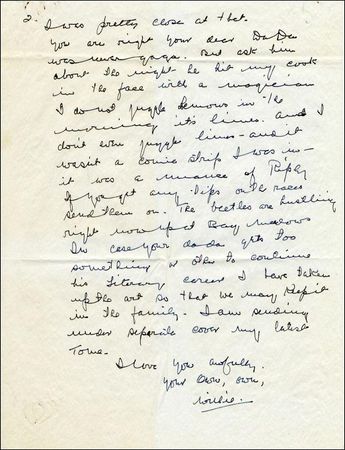 2.
I was pretty close at that.
You are right your dear DaDa
was never gaga. But ask him
about the night he hit my cook
in the face with a magician
I do not juggle lemons in the
morning it's limes. And I
don't even juggle limes - and it
wasn't a comic strip I was in -
it was a nuance of Ripley
If you get any tips on the races
send them on. The beetles are hustling
right now up at Bay Meadows
In case your dada gets too
something or other to continue
his literary career I have taken
up the art so that we may keep it
in the family. I am sending
under separate cover my latest
Tome.
I love you awfully.
Your own, own,